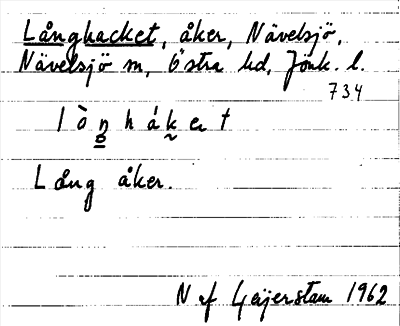 Långhacket, åker, Nävelsjö,
Nävelsjö sn, Östra hd, Jönk. l.
734
l ò n h á k e t
Lång åker.
N af Geijerstam 1962